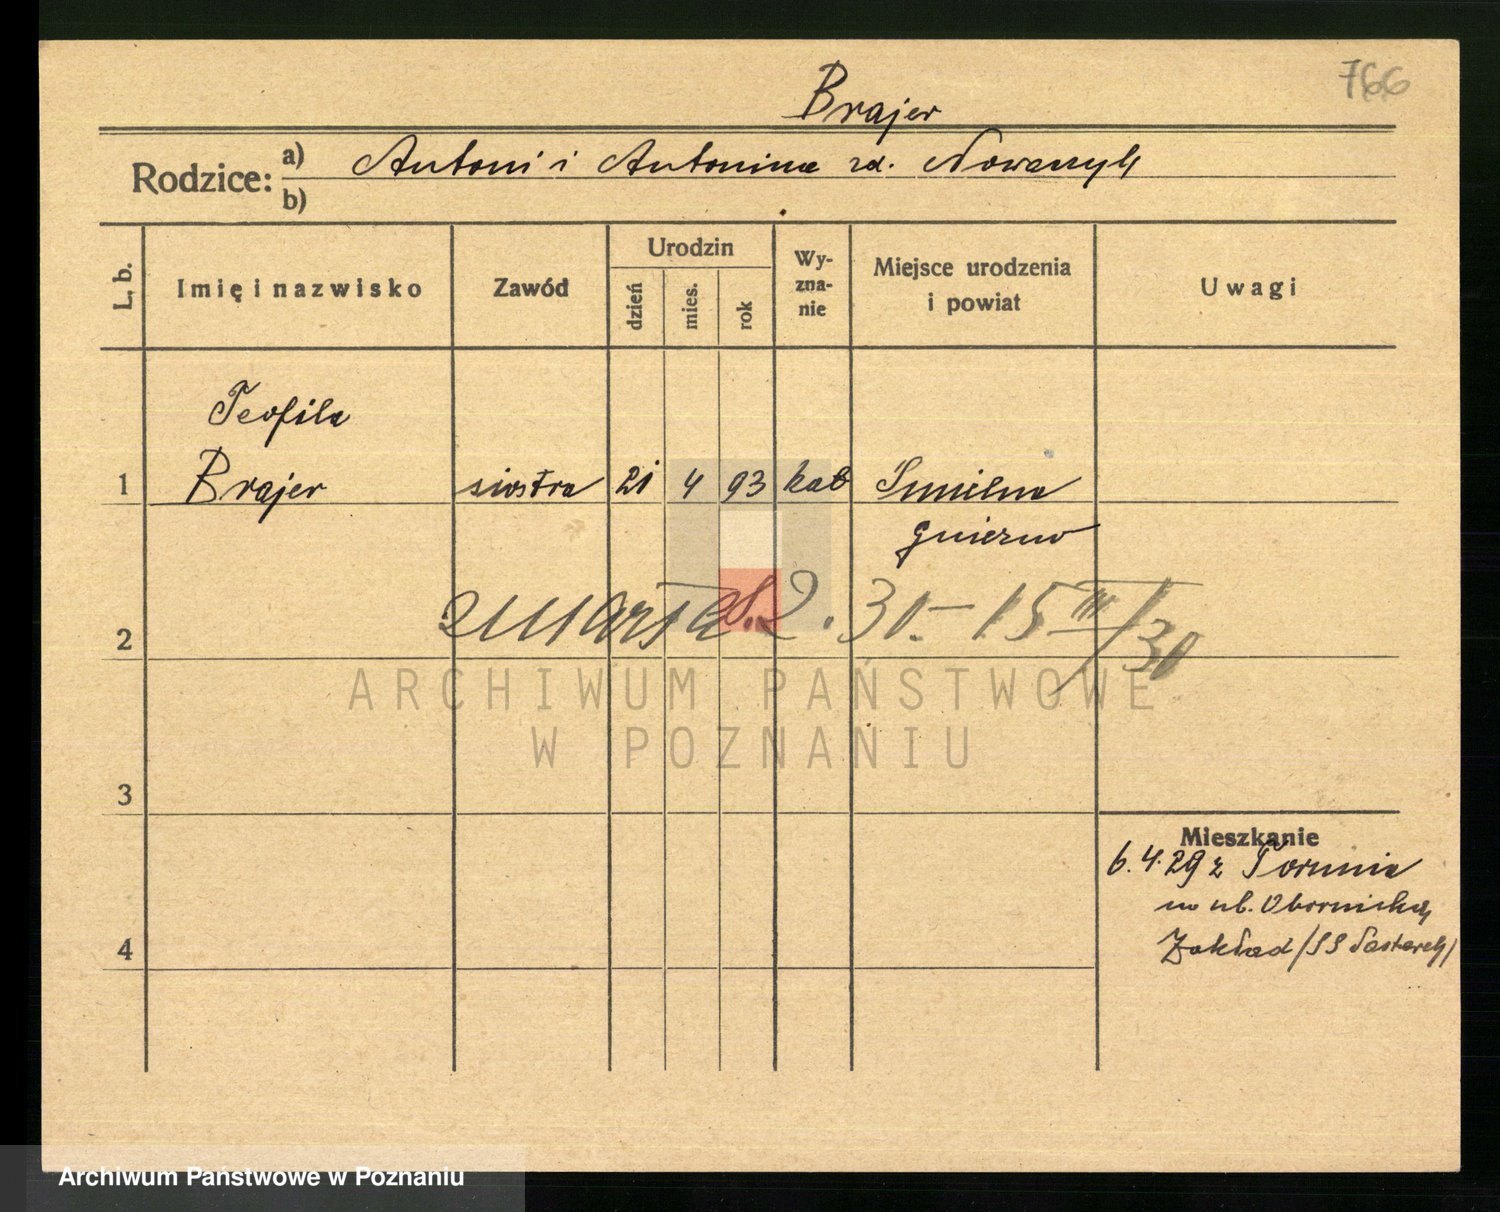 766
Brajer
Rodzice: a) Antoni i Antonina zd. Nowaczyk
b)
L. b.
Imię i nazwisko
Zawód
Urodzin
dzień
mies.
rok
Wy-
zna-
nie
Miejsce urodzenia
i powiat
Uwagi
Teofila
1 Brajer siostra 21 4 93 kat
Gniezno
2 zmarła 8.2.30 - 15 III/30
3
4
Mieszkanie
6.4.29 z Torunia
w ul. Obornicka
Zakład /SS
ARCHIWUM PAŃSTWOWE
W POZNANIU
Archiwum Państwowe w Poznaniu